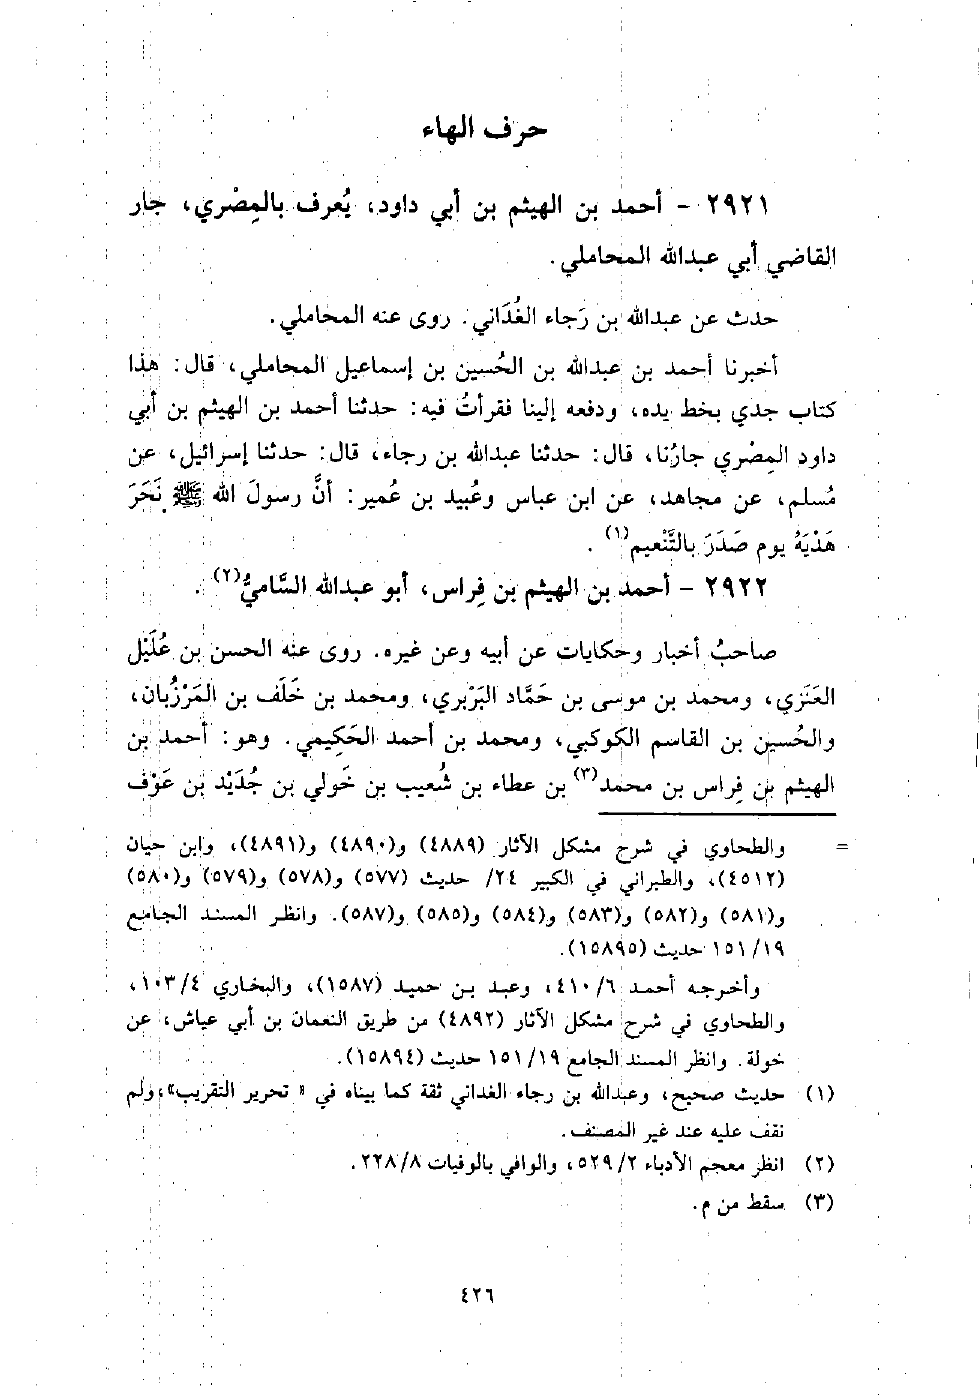 حرف الهاء
٢٩٢١ - أحمد بن الهيثم بن أبي داود، يُعرف بالمِصْري، جار
القاضي أبي عبدالله المحاملي.
حدث عن عبدالله بن رَجاء الغُدَاني. روى عنه المحاملي.
أخبرنا أحمد بن عبدالله بن الحُسين بن إسماعيل المحاملي، قال: هذا
كتاب جدي بخط يده، ودفعه إلينا فقرأتُ فيه: حدثنا أحمد بن الهيثم بن أبي
داود المِصْري جارُنا، قال: حدثنا عبدالله بن رجاء، قال: حدثنا إسرائيل، عن
مُسلم، عن مجاهد، عن ابن عباس وعُبيد بن عُمير: أنَّ رسولَ الله ﷺ نَحَرَ
هَدْيَهُ يوم صَدَرَ بالتَّنْعيم(١).
٢٩٢٢ - أحمد بن الهيثم بن فِراس، أبو عبدالله السَّاميُّ(٢).
صاحبُ أخبار وحكايات عن أبيه وعن غيره. روى عنه الحسن بن عُلَيْل
العَنَزي، ومحمد بن موسى بن حَمَّاد البَرْبري، ومحمد بن خَلَف بن المَرْزُبان،
والحُسين بن القاسم الكوكبي، ومحمد بن أحمد الحَكِيمي. وهو: أحمد بن
الهيثم بن فِراس بن محمد(٣) بن عطاء بن شُعيب بن خَولي بن جُدَيْد بن عَوْف
= والطحاوي في شرح مشكل الآثار (٤٨٨٩) و(٤٨٩٠) و(٤٨٩١)، وابن حيان
(٤٥١٢)، والطبراني في الكبير ٢٤/ حديث (٥٧٧) و(٥٧٨) و(٥٧٩) و(٥٨٠)
و(٥٨١) و(٥٨٢) و(٥٨٣) و(٥٨٤) و(٥٨٥) و(٥٨٧). وانظر المسند الجامع
١٥١/١٩ حديث (١٥٨٩٥).
وأخرجه أحمد ٤١٠/٦، وعبد بن حميد (١٥٨٧)، والبخاري ١٠٣/٤،
والطحاوي في شرح مشكل الآثار (٤٨٩٢) من طريق النعمان بن أبي عياش، عن
خولة. وانظر المسند الجامع ١٥١/١٩ حديث (١٥٨٩٤).
(١) حديث صحيح، وعبدالله بن رجاء الغداني ثقة كما بيناه في «تحرير التقريب»، ولم
نقف عليه عند غير المصنف.
(٢) انظر معجم الأدباء ٥٢٩/٢، والوافي بالوفيات ٢٢٨/٨.
(٣) سقط من م.
٤٢٦